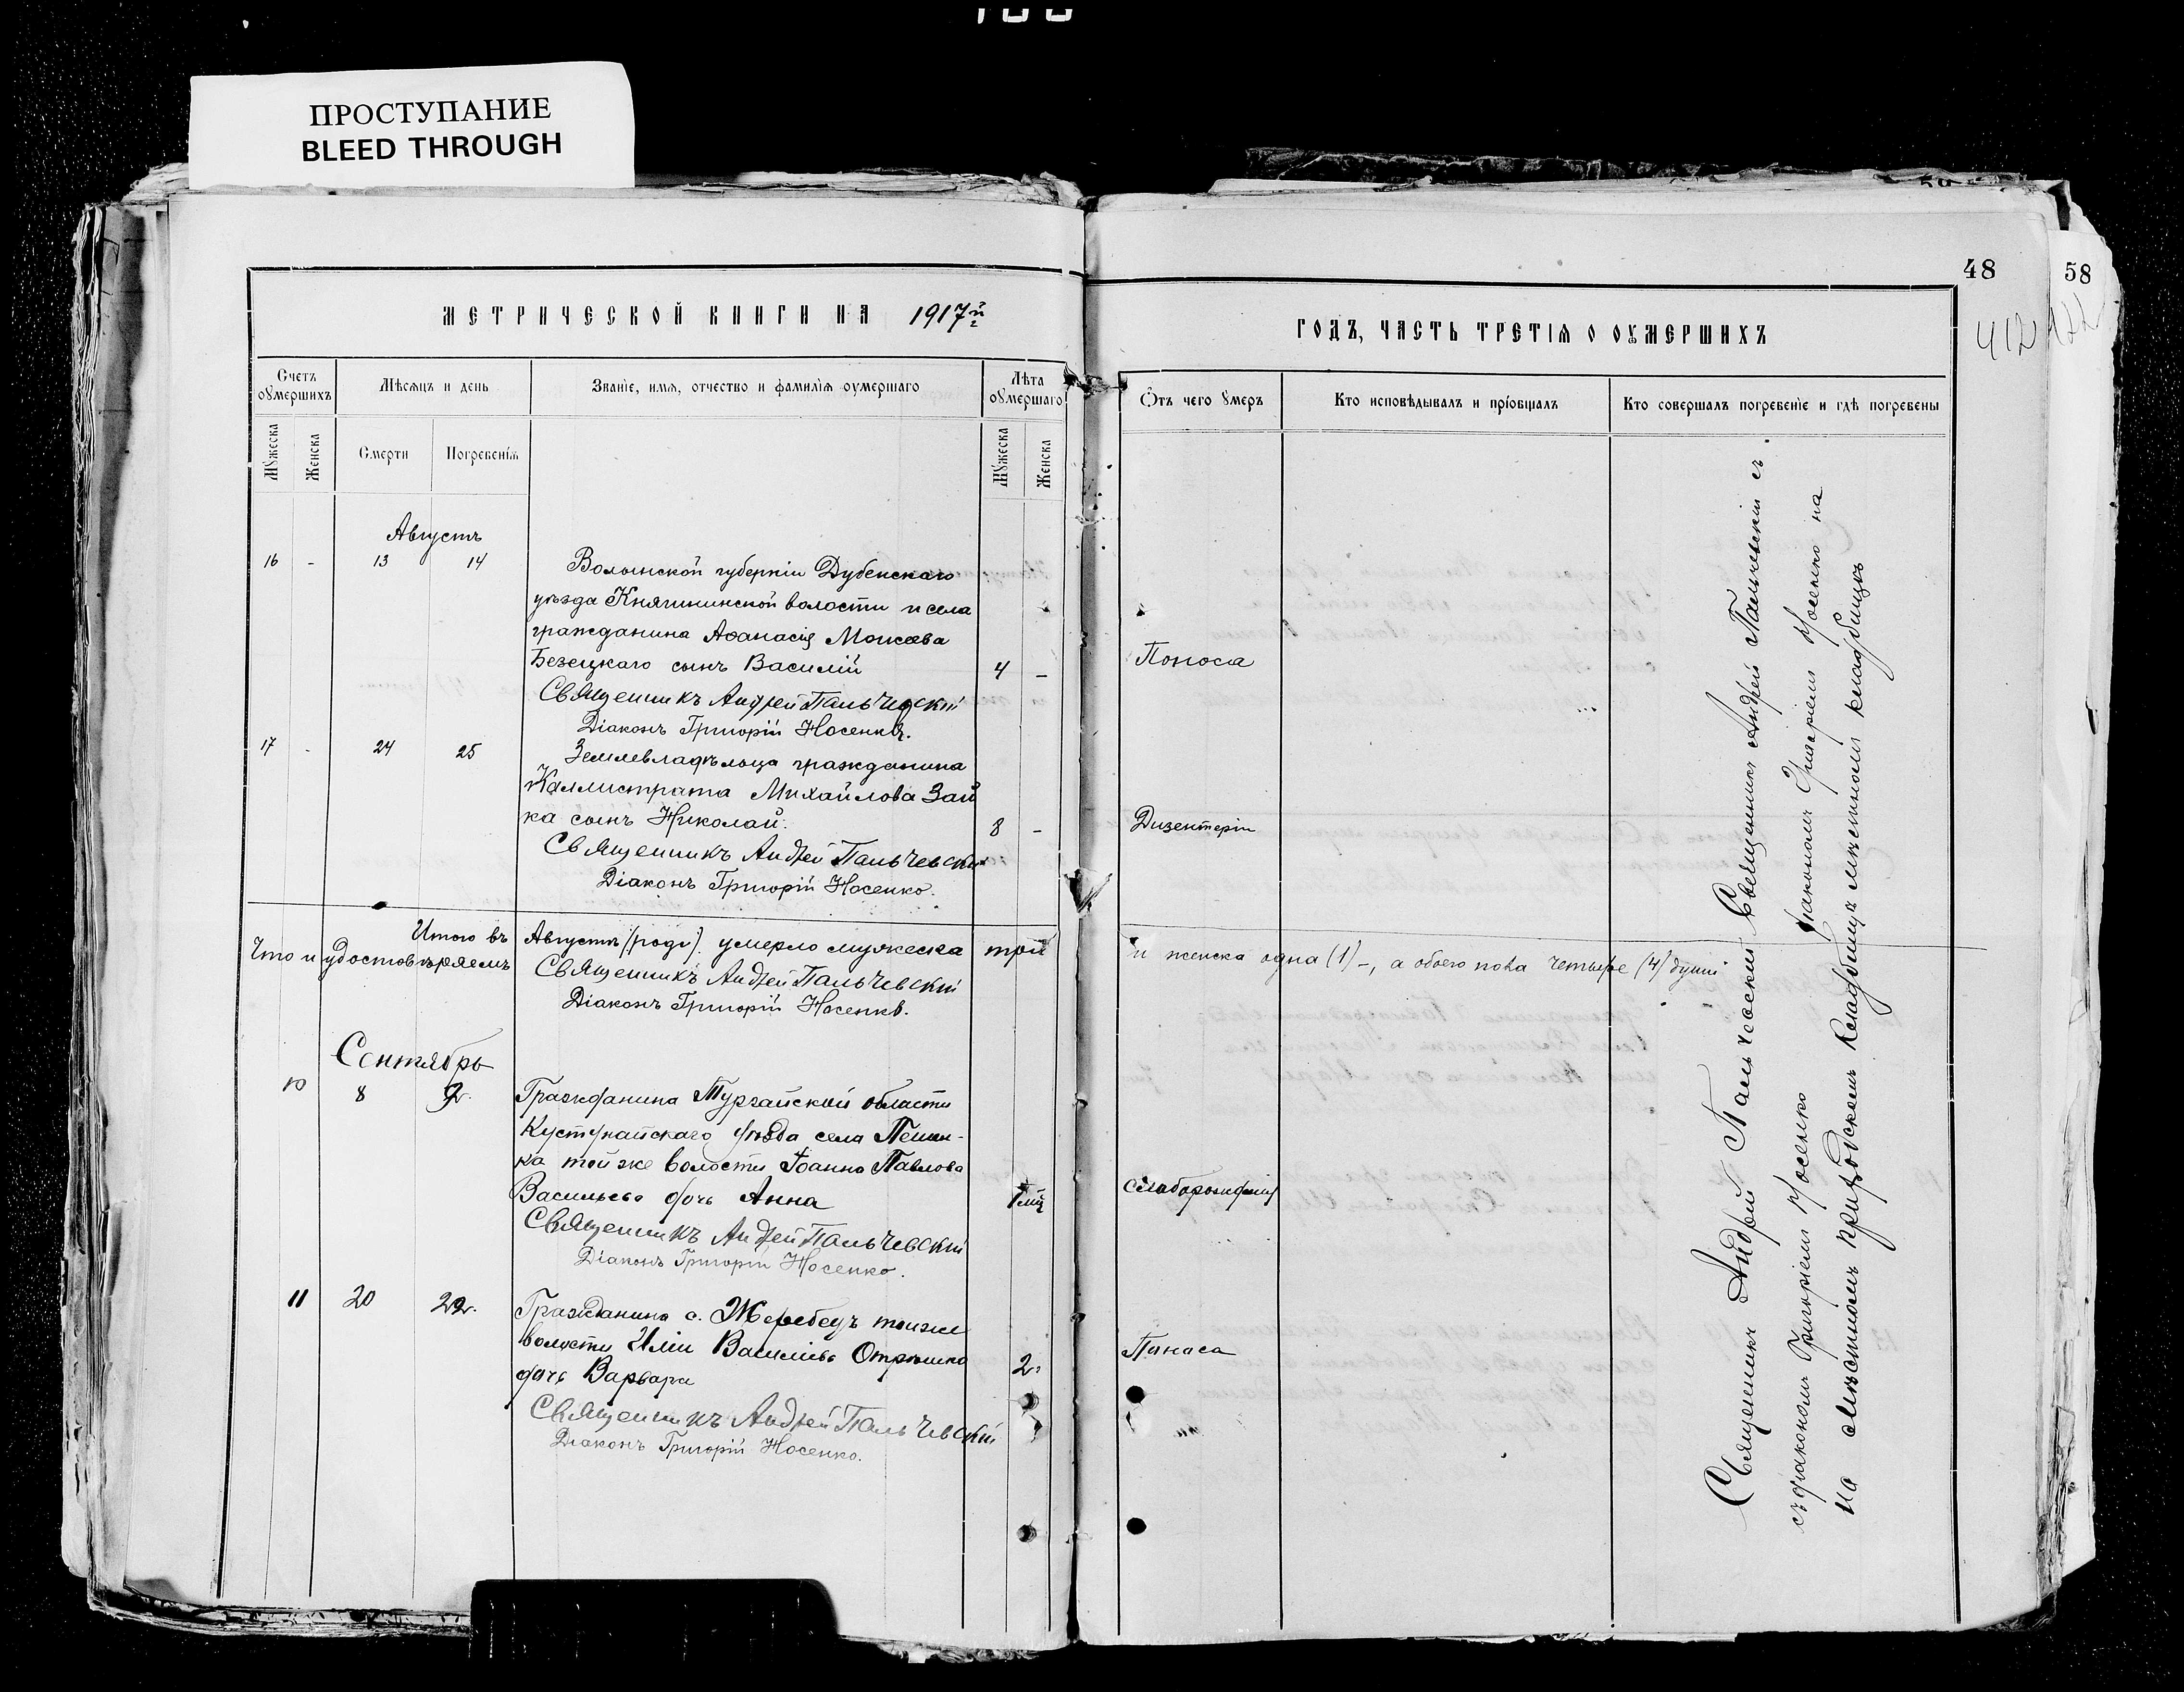 ПРОСТУПАНИЕ
BLEED THROUGH
48
58
412
МЕТРИЧЕСКОЙ КНИГИ НА 1917й г
Счетъ оумершихъ
Мѣсяцъ и день
Званіе, имя, отчество и фамилія оумершаго
Лѣта оумершаго
Мужеска
Женска
Смерти
Погребенія
Мужеска
Женска
Августъ
16 - 13 14 Волынской губерніи Дубенскаго
уѣзда Княгининской волости и села
гражданина Аѳанасія Моисеева
Безецкаго сынъ Василій 4 -
Священникъ Андрей Пальчевскій
Діаконъ Григорій Носенко.
17 - 24 25 Землевладѣльца гражданина
Каллистрата Михайлова Зай
ка сынъ Николай. 8 -
Священникъ Андрей Пальчевскій
Діаконъ Григорій Носенко.
Итого въ Августѣ умерло мужеска три
Что и удостовѣряемъ Священникъ Андрей Пальчевскій
Діаконъ Григорій Носенко.
Сентябрь
10 8 Гражданина Тургайской области
Кустанайскаго уѣзда села Пешков-
ка той же волости Іоанна Павлова
Васильева дочь Анна
Священникъ Андрей Пальчевскій
Діаконъ Григорій Носенко.
11 20 22. Гражданина с. Жеребецъ той же
волости Иліи Васильева Отрешко
дочь Варвара 2
Священникъ Андрей Пальчевскій
Діаконъ Григорій Носенко.
ГОДЪ, ЧАСТЬ ТРЕТІЯ О ОУМЕРШИХЪ
Отъ чего умеръ
Кто исповѣдывалъ и пріобщалъ
Кто совершалъ погребеніе и гдѣ погребены
Поноса
Дизентеріи
и женска одна (1) -, а обоего пола четыре (4) души
Слаборожденія
Паноса
Священникъ Андрей Пальчевскій съ
діакономъ Григоріемъ Носенко на
мѣстномъ кладбищѣ
Священникъ Андрей Пальчевскій
съ діакономъ Григоріемъ Носенко
на мѣстномъ приходскомъ кладбищѣ